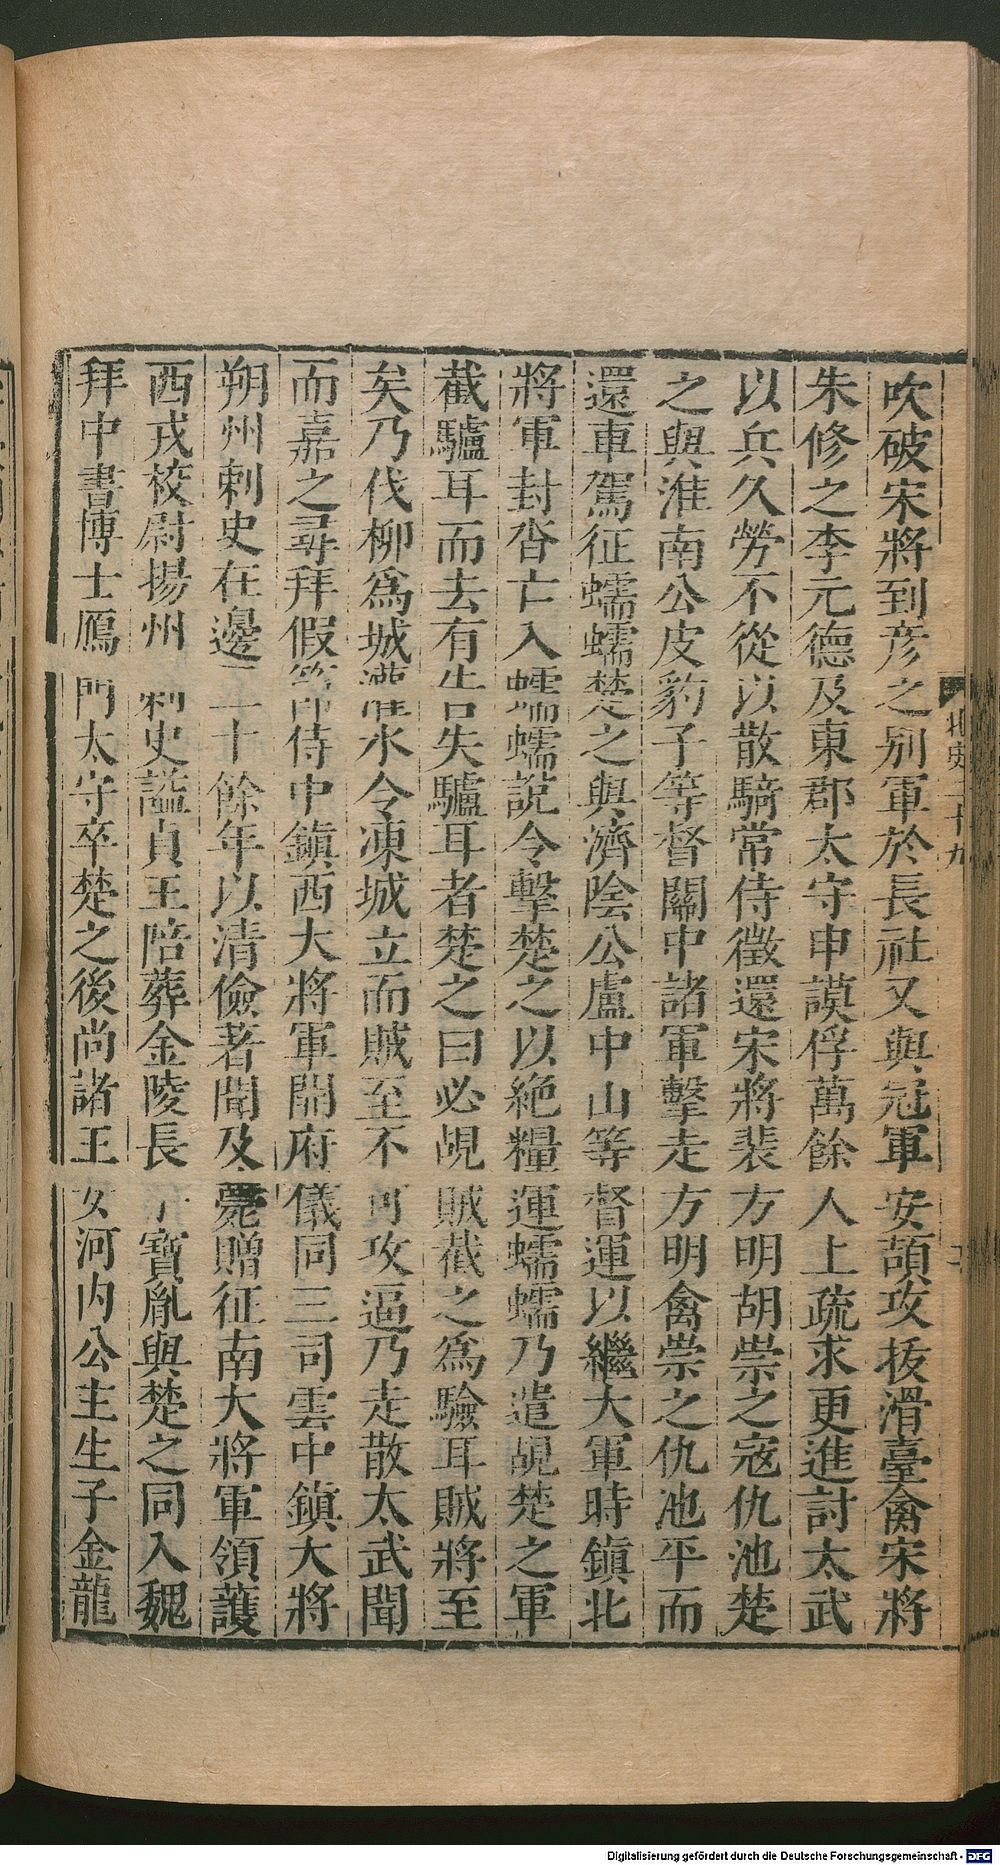 吹破宋將到彦之别軍於長社又與冠軍安頡攻拔滑臺禽宋將
朱修之李元德及東郡太守申謨俘萬餘人上疏求更進討太武
以兵久勞不從以散騎常侍徵還宋將裴方明胡崇之寇仇池楚
之與淮南公皮豹子等督關中諸軍擊走方明禽崇之仇池平而
還車駕征蠕蠕楚之與濟陰公盧中山等督運以繼大軍時鎮北
將軍封沓亡入蠕蠕說令擊楚之以絶糧運蠕蠕乃遣覘楚之軍
截驢耳而去有告失驢耳者楚之曰必覘賊截之爲驗耳賊將至
矣乃伐柳爲城灌水令凍城立而賊至不可攻逼乃走散太武聞
而嘉之尋拜假節侍中鎮西大將軍開府儀同三司雲中鎮大將
朔州刺史在邊二十餘年以清儉著聞及薨贈征南大將軍領護
西戎校尉揚州刺史謚貞王陪葬金陵長子寶胤與楚之同入魏
拜中書博士鴈門太守卒楚之後尚諸王女河内公主生子金龍
北史二十九
Digitalisierung gefördert durch die Deutsche Forschungsgemeinschaft - DFG